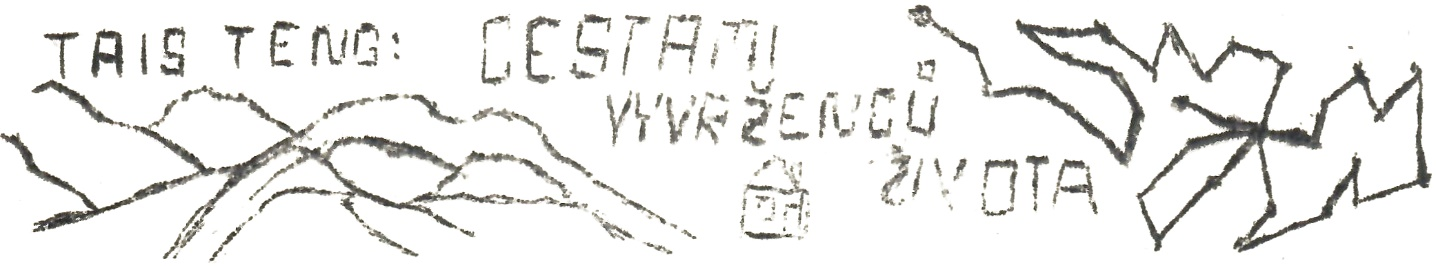 TAIS TENG: CESTAMI
VYVRŽENCŮ
ŽIVOTA